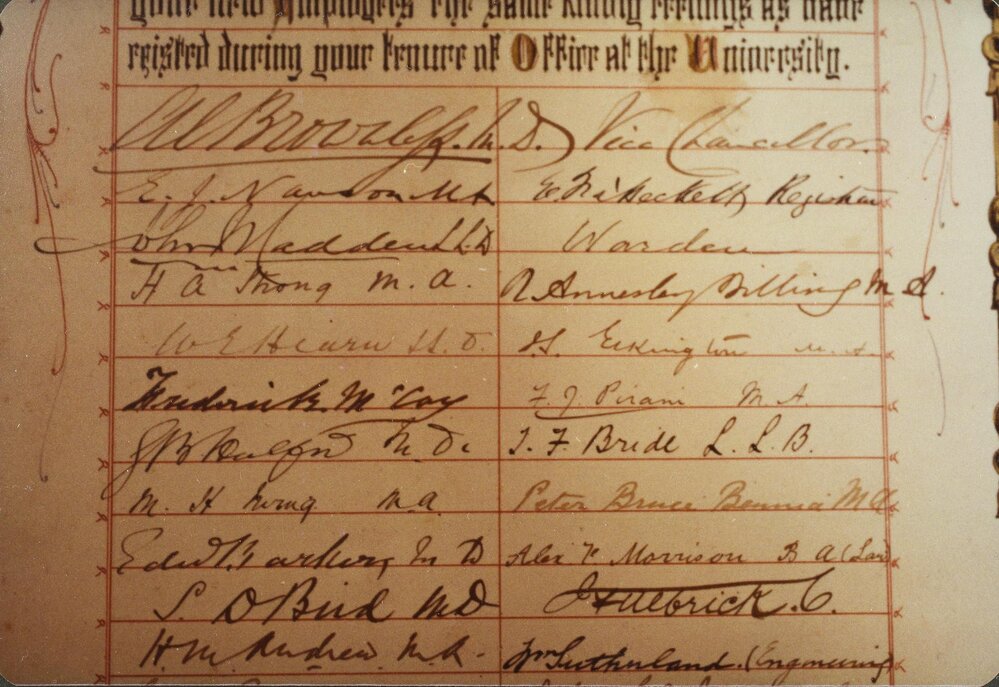 your new Employers the same kindly feelings as have
existed during your tenure of Office at the University.
M.D. Vice Chancellor.
E. J. Nanson M A
E. F. à Beckett Registrar
John Madden LL.D
Warden
H A Strong M. A.
R Annesley Billing M A.
W E Hearn LL. D.
H. Elkington M. A.
Frederick McCoy
F. J. Pirani M. A.
G B Halford M. D.
T. F. Bride L. L. B.
M. H Irving M. A.
Peter Bruce Bennie M A.
Edwd. Barker M D
Alex Morrison B A (Law)
S. D Bird MD
J Fulbrick. C.
H. M. Andrew. M. A.
Wm Sutherland. (Engineering)